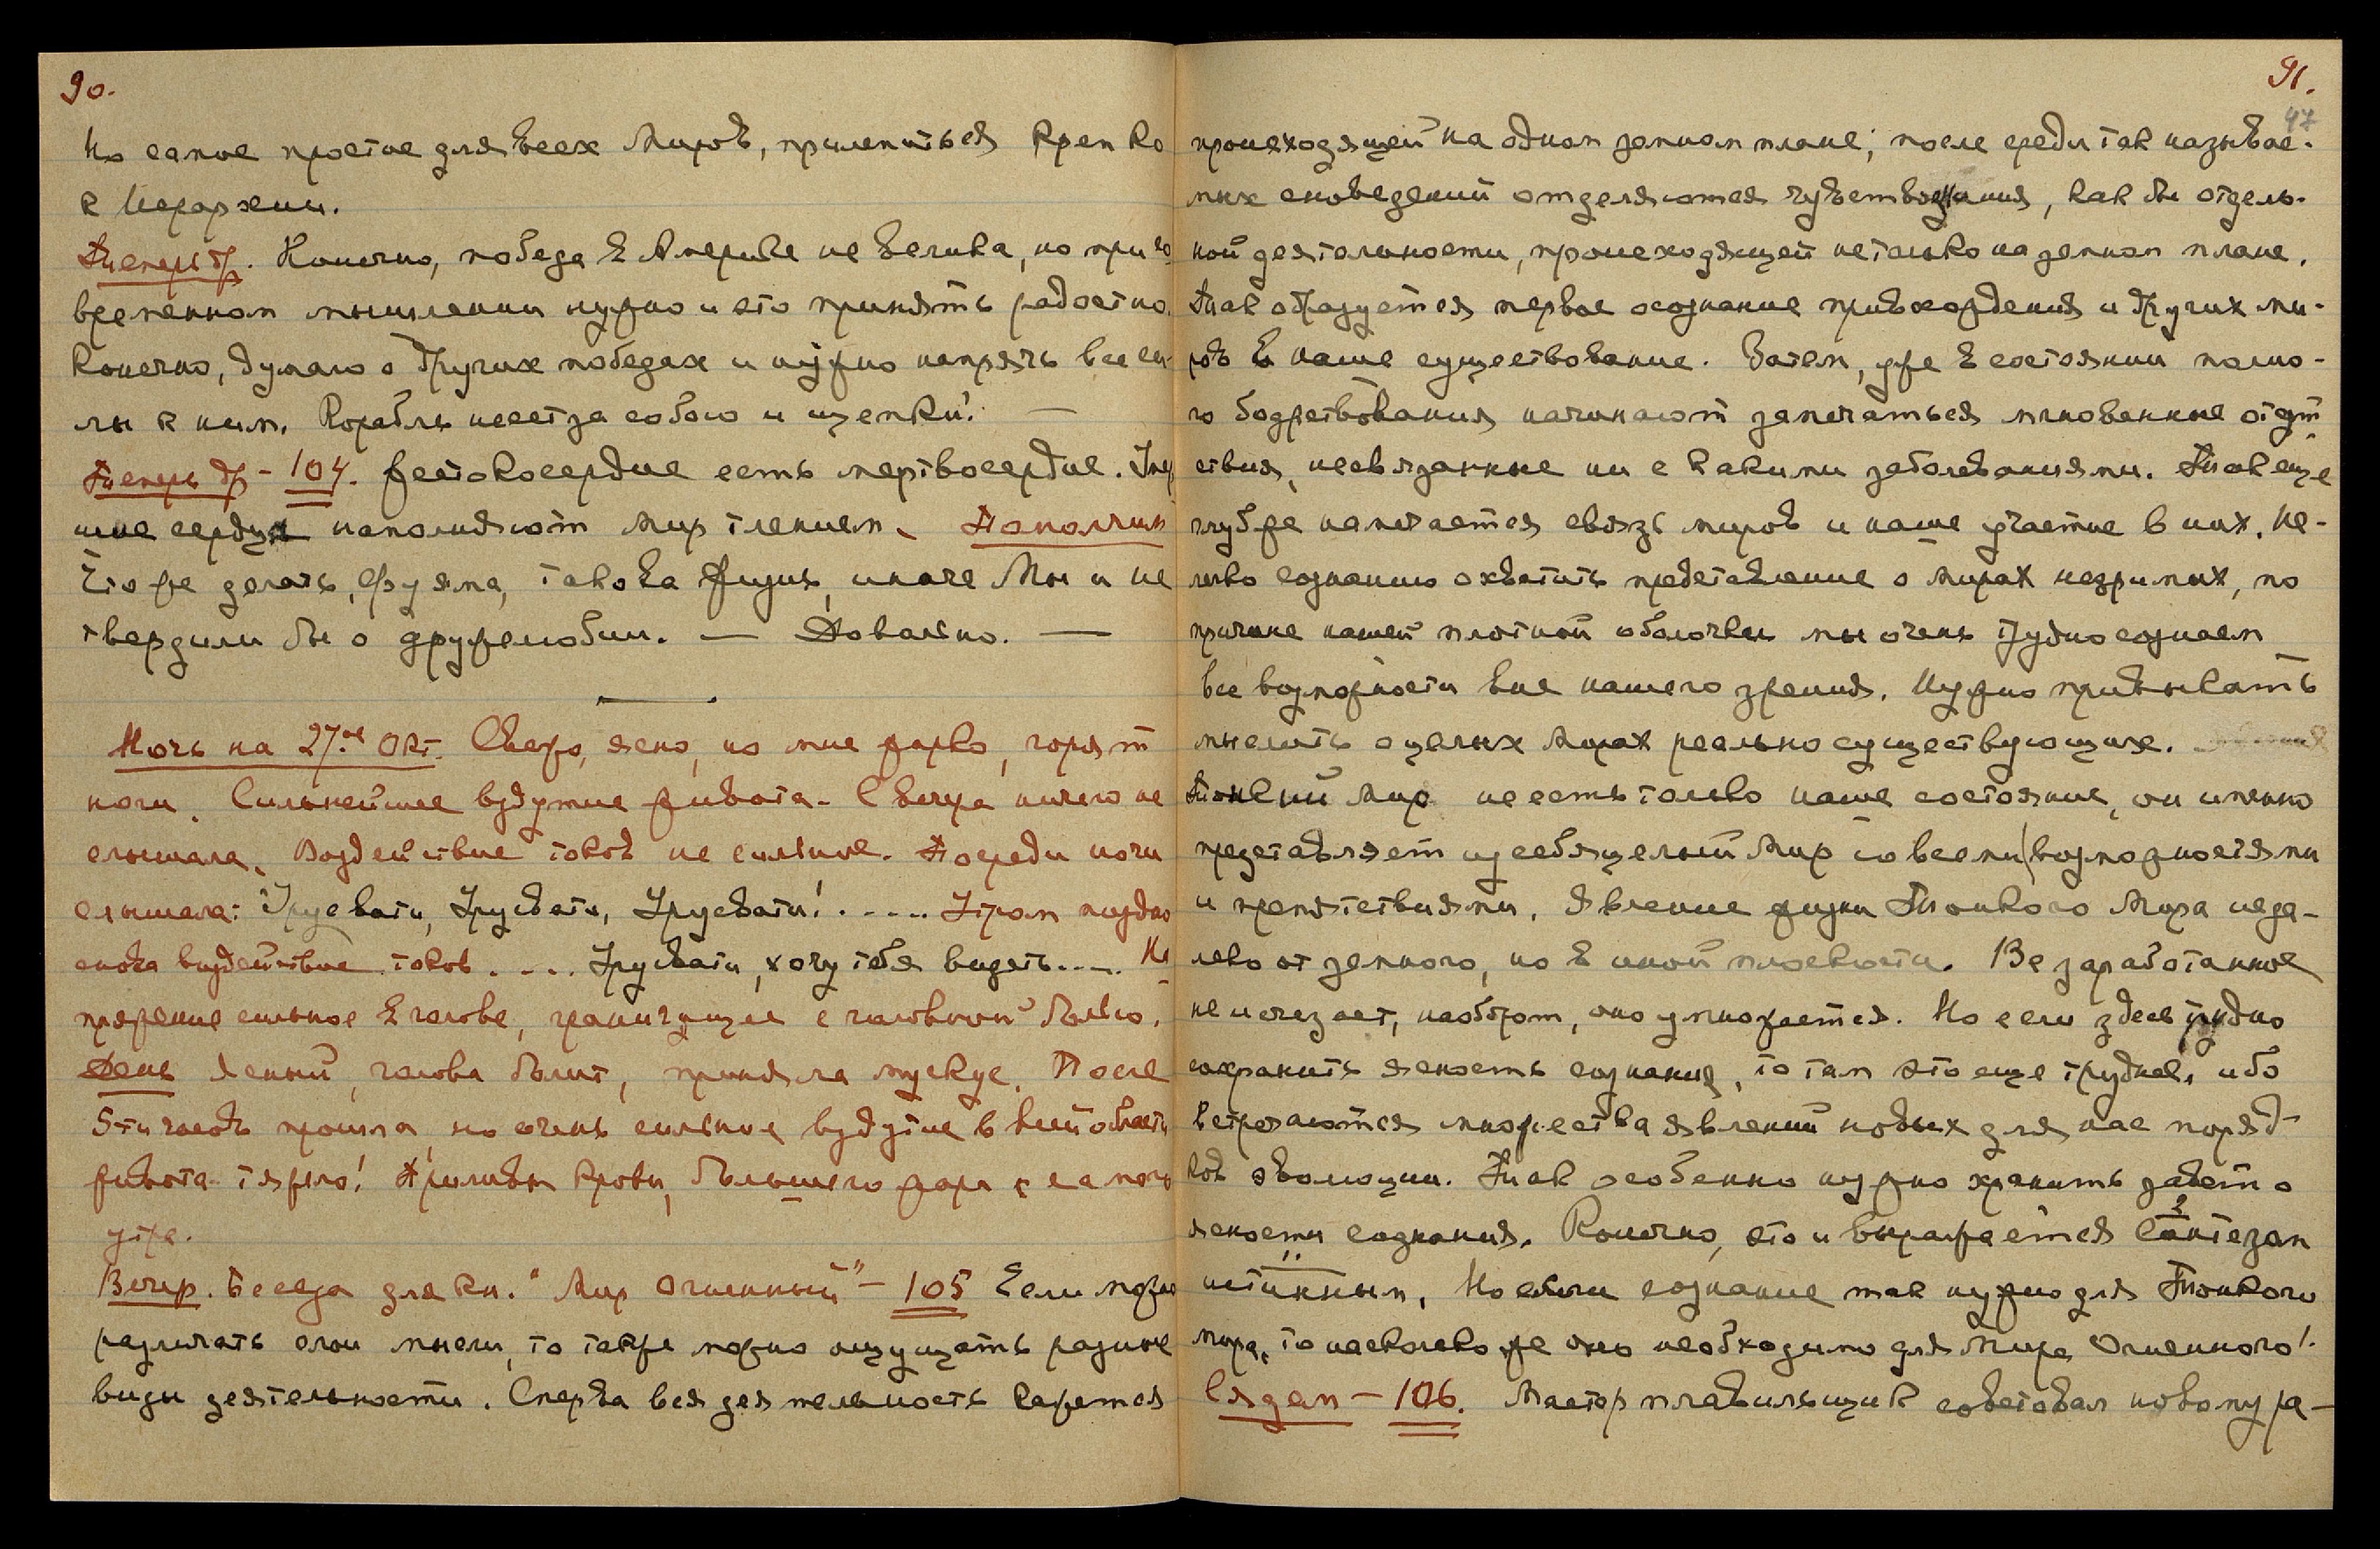 90.
Но самое простое для всех Миров, прилепиться крепко
к Иерархии.
Теперь др. Конечно, победа в Америке не велика, но при со
временном мышлении нужно и это принять радостно.
Конечно, думаю о других победах и нужно напрячь все си-
лы к ним. Корабль несет за собою и щепки! —
Теперь др – 104. Жестокосердие есть мертвосердие. Умер
шие сердца наполняют мир тлением. Помолчим
Что же делать, Фуяма, такова жизнь, иначе Мы и не
твердили бы о дружелюбии. — Довольно. —
Ночь на 27ое Окт. Свежо, ясно, но мне жарко, горят
ноги. Сильнейшее вздутие живота. С вечера ничего не
слышала. Воздействие токов не сильное. Посреди ночи
слышала: Урусвати, Урусвати, Урусвати! ..... Утром поздно
снова воздействие токов .... Урусвати, хочу тебя видеть.... На
пряжение сильное в голове, граничущее с головной болью.
День ясный, голова болит, приняла мускус. После
5ти часов прошла, но очень сильное вздутие в всей области
живота тяжело! Приливы крови, большого жара с самого
утра.
Вечер. Беседа для кн. "Мир Огненный" – 105 Если можно
различать слои мысли, то также можно ощущать разные
виды деятельности. Сперва вся деятельность кажется
91.
47
происходящей на одном земном плане; после среди так называе-
мых сновидений отделяются чувствования, как бы отдель-
ной деятельности, происходящей не только на земном плане.
Так образуется первое осознание привхождения и других ми-
ров в наше существование. Затем, уже в состоянии полно-
го бодрствования начинают замечаться мгновенные отсут
ствия, несвязанные ни с какими заболеваниями. Так еще
глубже намечается связь миров и наше участие в них. Не-
легко сознанию охватить представление о Мирах незримых, по
причине нашей плотной оболочки мы очень трудно сознаем
все возможности вне нашего зрения. Нужно привыкать
мыслить о целых Мирах реально существующих.
Тонкий Мир не есть только наше состояние, он именно
представляет из себя целый Мир со всеми возможностями
и препятствиями. Явление жизни Тонкого Мира неда-
леко от земного, но в иной плоскости. Все заработанное
не исчезает, наоборот, оно умножается. Но если здесь трудно
сохранить ясность сознания, то там это еще труднее, ибо
встречаются множества явлений новых для нас поряд-
ков эволюции. Так особенно нужно хранить завет о
ясности сознания. Конечно, это и выражается Синтезом
истинным. Но если сознание так нужно для Тонкого
Мира, то насколько же оно необходимо для Мира Огненного!
Сядем – 106. Мастер плавильщик советовал новому ра-